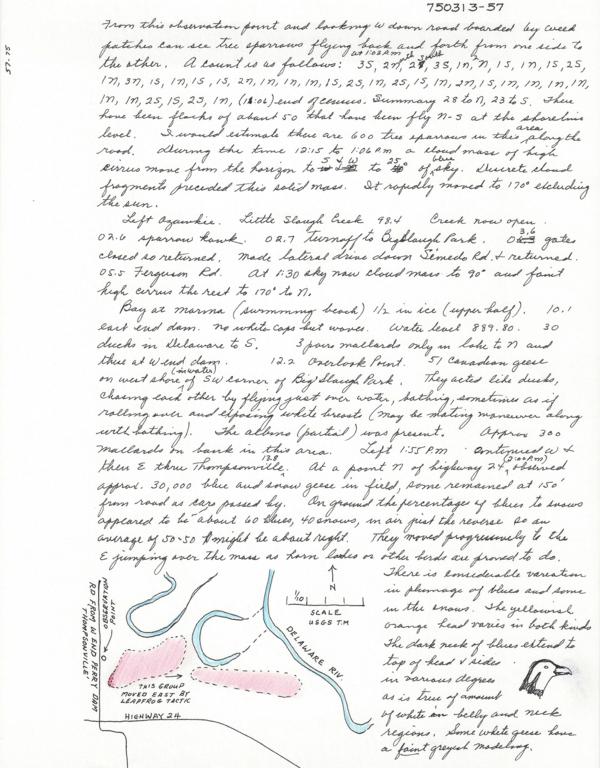 750313-57
57-75
From this observation point and looking W down road boarded by weed
patches can see tree sparrows flying back and forth from one side to
the other. A count is as follows: at 1:02 P.M. 3S, 2N, 2S, 3S, 1N, N, 1S, 1N, 1S, 2S,
1N, 3N, 1S, 1N, 1S, 1S, 2N, 1N, 1N, 1N, 1S, 2S, 1N, 2S, 1S, 1N, 2N, 1S, 1N, 1N, 1N, 1N,
1N, 1N, 2S, 1S, 2S, 1N, (1:06) end of census. Summary 28 to N, 23 to S. There
have been flocks of about 50 that have been fly N-S at the shoreline
level. I would estimate there are 600 tree sparrows in this area along the
road. During the time 12:15 to 1:06 P.M. a cloud mass of high
cirrus move from the horizon to S & W to 25° of blue sky. Discrete cloud
fragments preceded this solid mass. It rapidly moved to 170° excluding
the sun.
Left Ozawkie. Little Slough Creek 98.4 Creek now open.
02.6 sparrow hawk. 02.7 turnoff to Big Slough Park. 03.6 gates
closed so returned. Made lateral drive down Demedo Rd. & returned.
05.5 Ferguson Rd. At 1:30 sky now cloud mass to 90° and faint
high cirrus the rest to 170° to N.
Bay at marina (swimming beach) 1/2 in ice (upper half). 10.1
east end dam. no white caps but waves. Water level 889.80. 30
ducks in Delaware to S. 3 pairs mallards only in lake to N and
these at W end dam. 12.2 Overlook Point. 51 Canadian geese
(in water)
on west shore of SW corner of Big Slough Park. They acted like ducks,
chasing each other by flying just over water, bathing, sometimes as if
rolling over and exposing white breasts (may be mating maneuver along
with bathing). The albino (partial) was present. Approx 300
mallards on bank in this area. Left 1:55 P.M. continued W &
then E thru Thompsonville. 13.8 At a point N of highway 24, (2:00 P.M.) observed
approx. 30,000 blue and snow geese in field, some remained at 150'
from road as cars passed by. On ground the percentages of blues to snows
appeared to be about 60 blues, 40 snows, in air just the reverse so an
average of 50-50 might be about right. They moved progressively to the
E jumping over the mass as horn larks or other birds are proned to do.
There is considerable variation
in plumage of blues and some
in the snows. The yellowish
orange head varies in both kinds
The dark neck of blues extend to
top of head & sides
in various degrees
as is true of amount
of white on belly and neck
regions. Some white geese have
a faint greyish modeling.
RD FROM W END PERRY DAM
THOMPSONVILLE
OBSERVATION
POINT
THIS GROUP
MOVED EAST BY
LEAPFROG TACTIC
HIGHWAY 24
N
1/10
SCALE
USGS T.M
DELAWARE RIV.